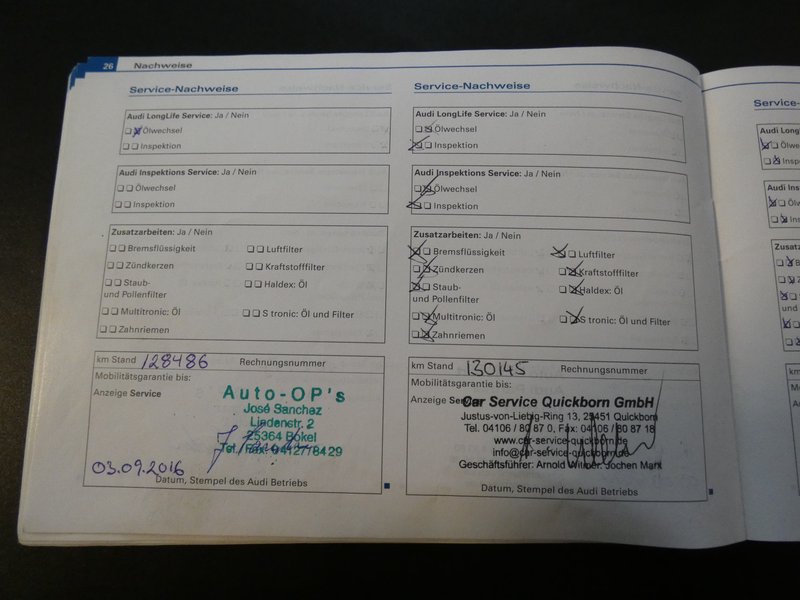 26 Nachweise
Service-Nachweise
Audi LongLife Service: Ja / Nein
Ölwechsel
Inspektion
Audi Inspektions Service: Ja / Nein
Ölwechsel
Inspektion
Zusatzarbeiten: Ja / Nein
Bremsflüssigkeit
Luftfilter
Zündkerzen
Kraftstofffilter
Staub-
und Pollenfilter
Haldex: Öl
Multitronic: Öl
S tronic: Öl und Filter
Zahnriemen
km Stand 128486 Rechnungsnummer
Mobilitätsgarantie bis:
Anzeige Service
Auto-OP's
José Sanchez
Lindenstr. 2
25364 Bokel
Tel./Fax: 04127/8429
03.09.2016
Datum, Stempel des Audi Betriebs
Service-Nachweise
Audi LongLife Service: Ja / Nein
Ölwechsel
Inspektion
Audi Inspektions Service: Ja / Nein
Ölwechsel
Inspektion
Zusatzarbeiten: Ja / Nein
Bremsflüssigkeit
Luftfilter
Zündkerzen
Kraftstofffilter
Staub-
und Pollenfilter
Haldex: Öl
Multitronic: Öl
S tronic: Öl und Filter
Zahnriemen
km Stand 130145 Rechnungsnummer
Mobilitätsgarantie bis:
Anzeige Service
Car Service Quickborn GmbH
Justus-von-Liebig-Ring 13, 25451 Quickborn
Tel. 04106 / 80 87 0, Fax: 04106 / 80 87 18
www.car-service-quickborn.de
info@car-service-quickborn.de
Geschäftsführer: Arnold Jochen Marx
Datum, Stempel des Audi Betriebs
Service-
Audi Long
Ölwe
Insp
Audi Ins
Öl
In
Zusatz
B
Z
S
km
Mo
A